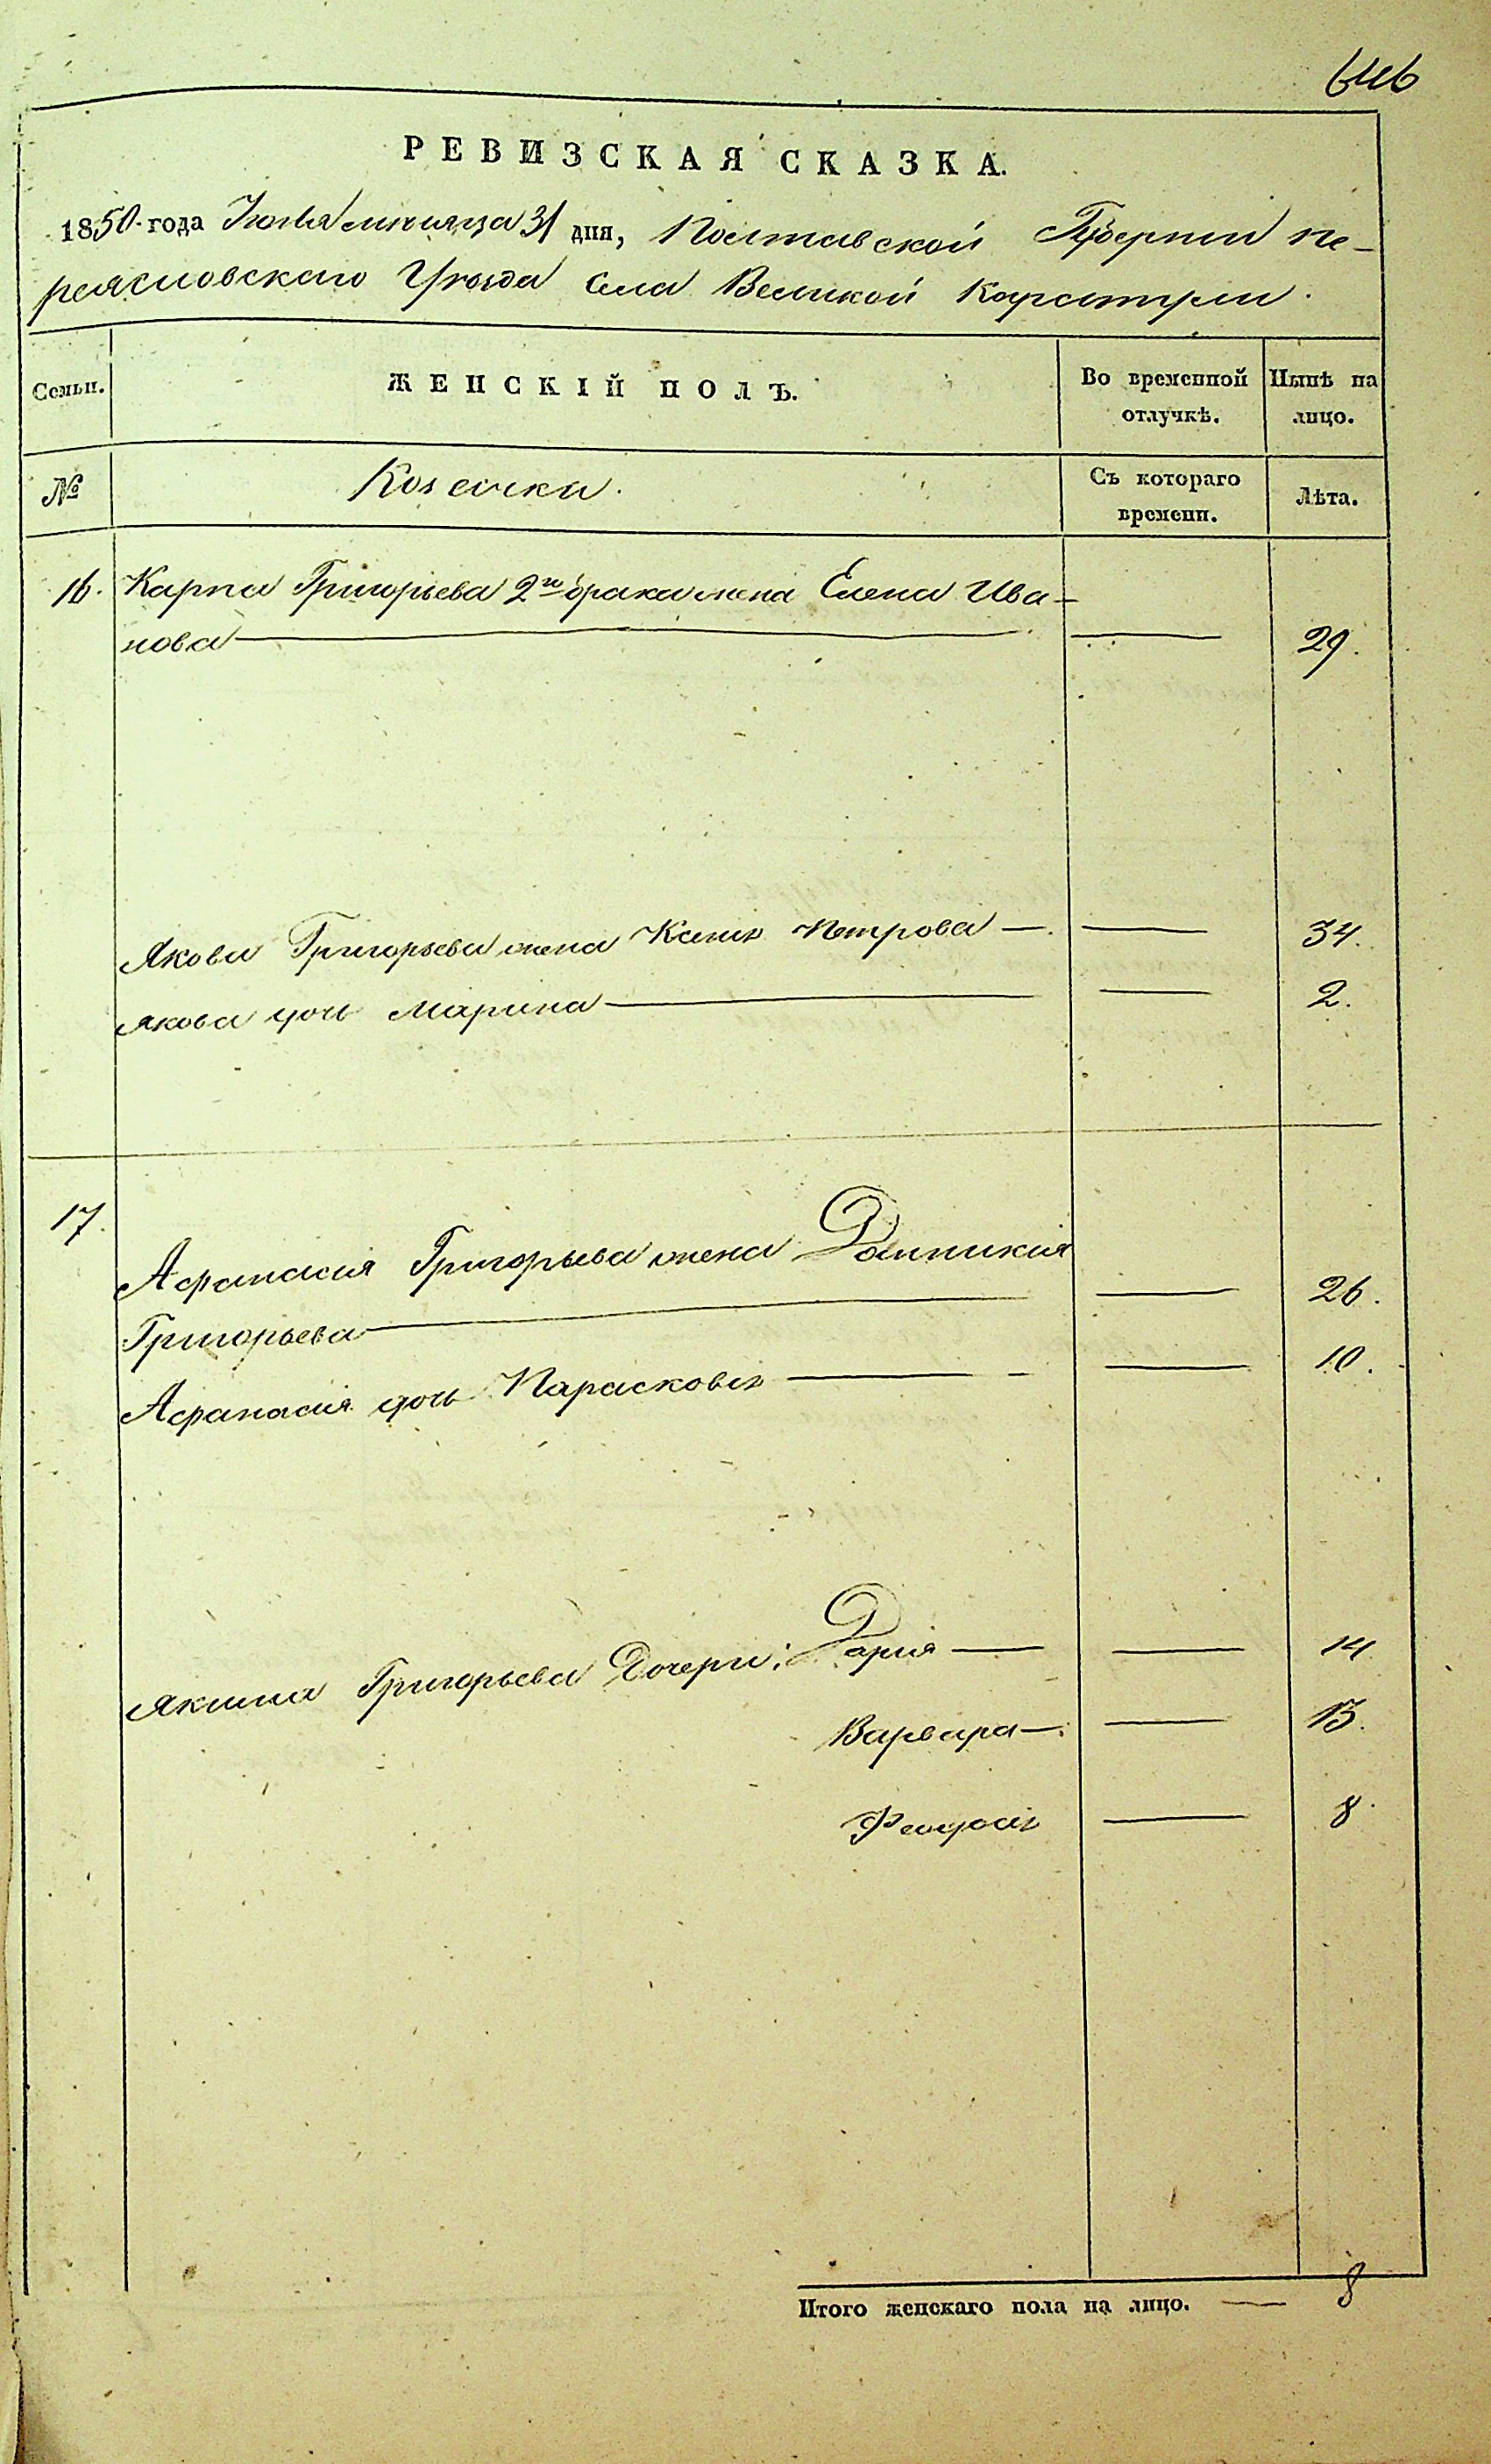 646
РЕВИЗСКАЯ СКАЗКА.
1850 года Июля мѣсяца 31 дня, Полтавской Губерніи пе-
реясловскаго Уѣзда Села Великой Каратули.
Семьи. ЖЕНСКІЙ ПОЛЪ. Во временной отлучкѣ. Нынѣ на лицо.
№ Козачки. Съ котораго времени. Лѣта.
16. Карпа Григорьева 2го брака жена Елена Ива-
нова 29.
Якова Григорьева жена Петрова 34.
Якова дочь Марина 2.
17. Афанасия Григорьева жена Домникия
Григорьева 26.
Афанасия дочь Парасковія 10.
Якима Григорьева Дочери: Дария 14
Варвара 13.
Феодосія 8.
Итого женскаго пола на лицо. 8